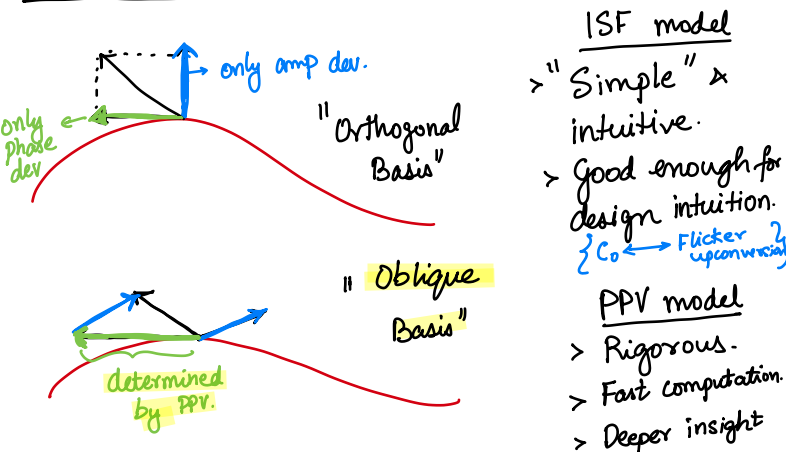 only amp dev.
only
Phase
dev
"Orthogonal
Basis"
"Oblique
Basis"
determined
by PPV.
ISF model
>"Simple" &
intuitive.
> Good enough for
design intuition.
{C₀ ↔ Flicker
upconversion}
PPV model
> Rigorous.
> Fast computation.
> Deeper insight